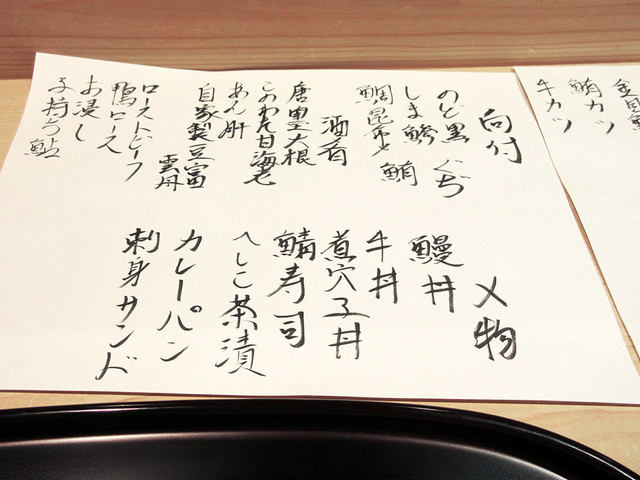 向付
のど黒 ぐぢ
しま鯵 鮪
鯛昆布〆
酒肴
唐墨大根
このわた甘海老
あん肝
自家製豆富
雲丹
ローストビーフ
鴨ロース
お浸し
子持ち鮎
〆物
鰻丼
牛丼
煮穴子丼
鯖寿司
へしこ茶漬
カレーパン
刺身サンド
鮪カツ
牛カツ